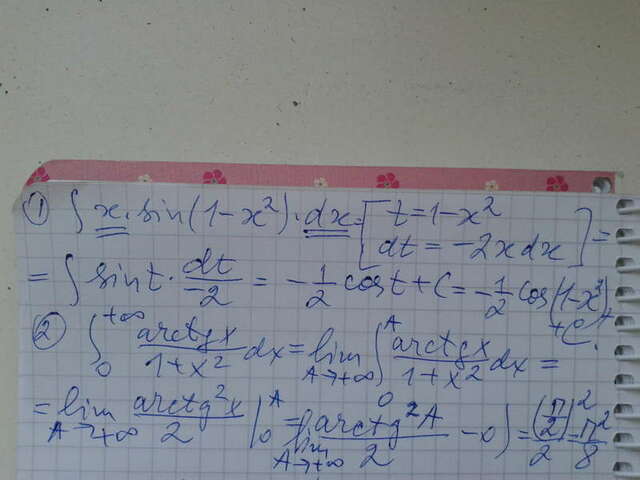 ① ∫ x · sin(1-x²) · dx = [ t = 1-x²
dt = -2x dx ] =
= ∫ sin t · dt/-2 = -1/2 cos t + C = -1/2 cos(1-x²) + C.
② ∫₀^+∞ arctg x/1+x² dx = lim A→+∞ ∫₀^A arctg x/1+x² dx =
= lim A→+∞ arctg²x/2 |₀^A = lim A→+∞ (arctg²A/2 - 0) = (π/2)²/2 = π²/8